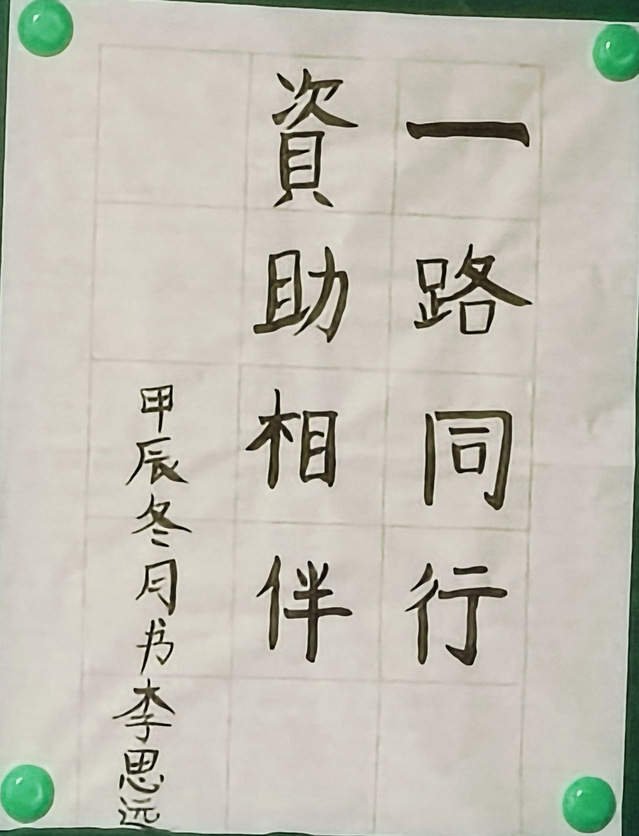 一路同行
資助相伴
甲辰冬月书李思远